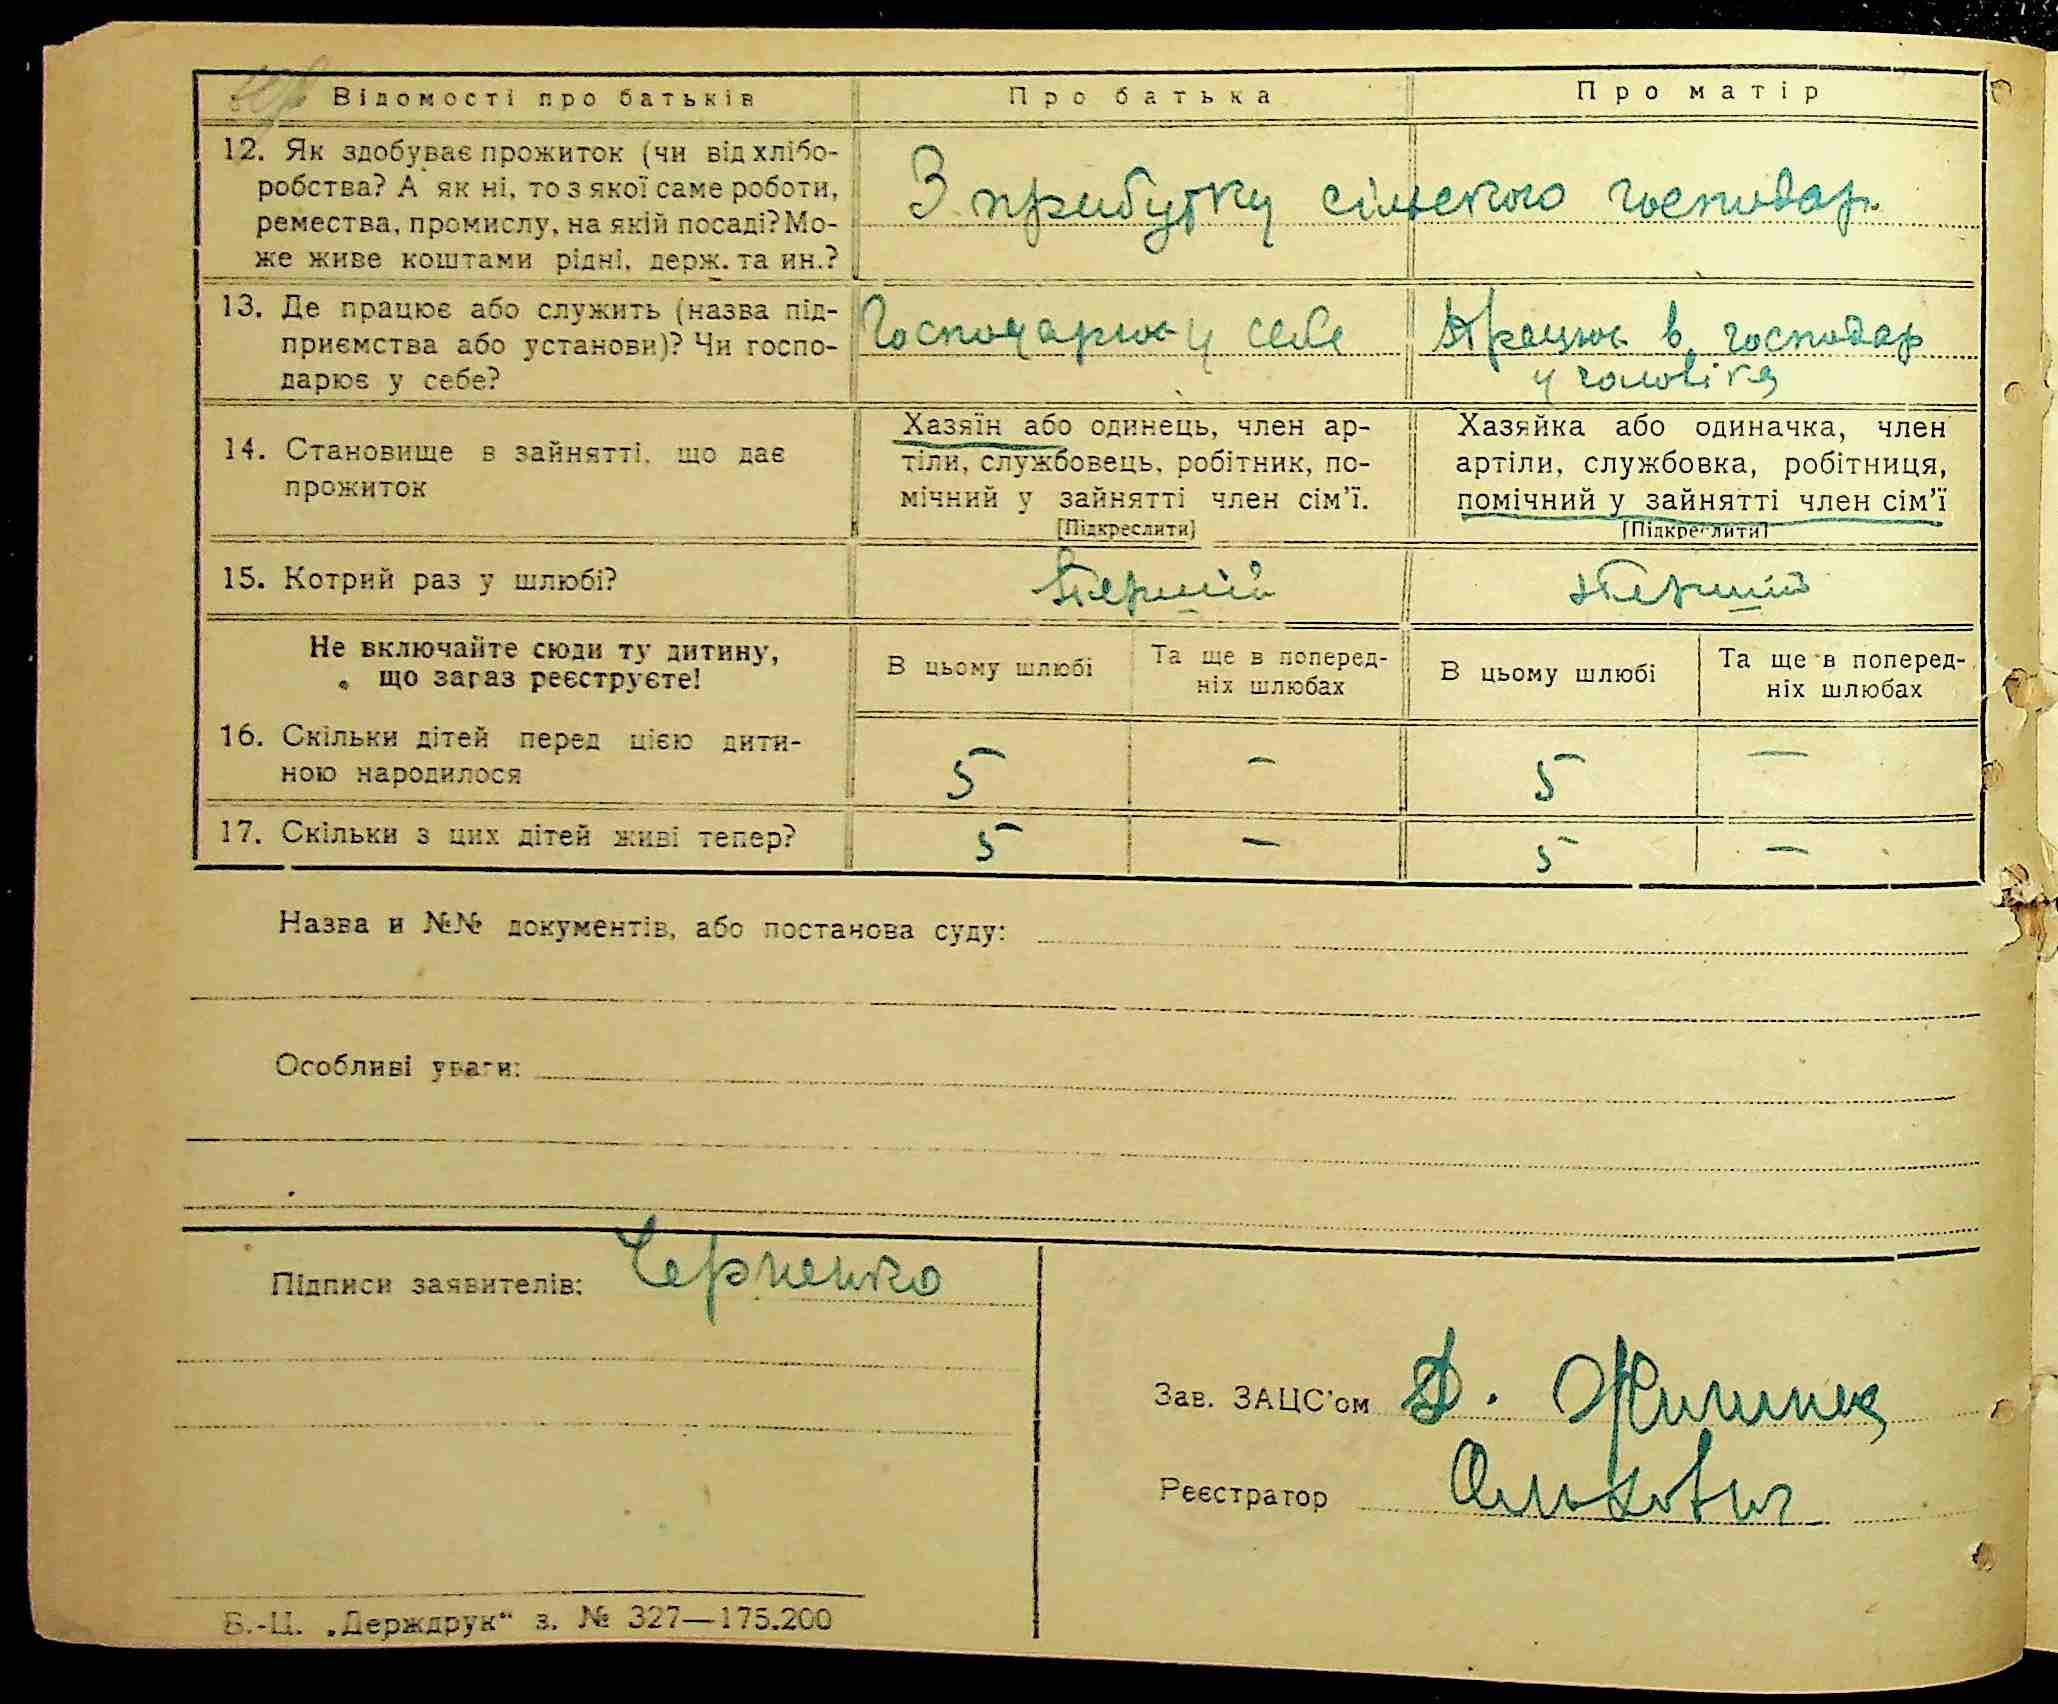 Відомості про батьків
Про батька
Про матір
12. Як здобуває прожиток (чи від хлібо-
робства? А як ні, то з якої саме роботи,
ремества, промислу, на якій посаді? Мо-
же живе коштами рідні, держ. та ин.?
З прибутку сільского господар.
13. Де працює або служить (назва під-
приємства або установи)? Чи госпо-
дарює у себе?
Господарює у себе
Працює в господар
у чоловіка
14. Становище в зайнятті, що дає
прожиток
Хазяїн або одинець, член ар-
тіли, службовець, робітник, по-
мічний у зайнятті член сім'ї.
[Підкреслити]
Хазяйка або одиначка, член
артіли, службовка, робітниця,
помічний у зайнятті член сім'ї
[Підкреслити]
15. Котрий раз у шлюбі?
Перший
Перший
Не включайте сюди ту дитину,
що зараз реєструєте!
В цьому шлюбі
Та ще в поперед-
ніх шлюбах
В цьому шлюбі
Та ще в поперед-
ніх шлюбах
16. Скільки дітей перед цією дити-
ною народилося
5
–
5
–
17. Скільки з цих дітей живі тепер?
5
–
5
–
Назва и №№ документів, або постанова суду:
Особливі уваги:
Підписи заявителів: Черненко
Зав. ЗАЦС'ом Д.
Реєстратор
В.-Ц. „Держдрук“ з. № 327—175.200